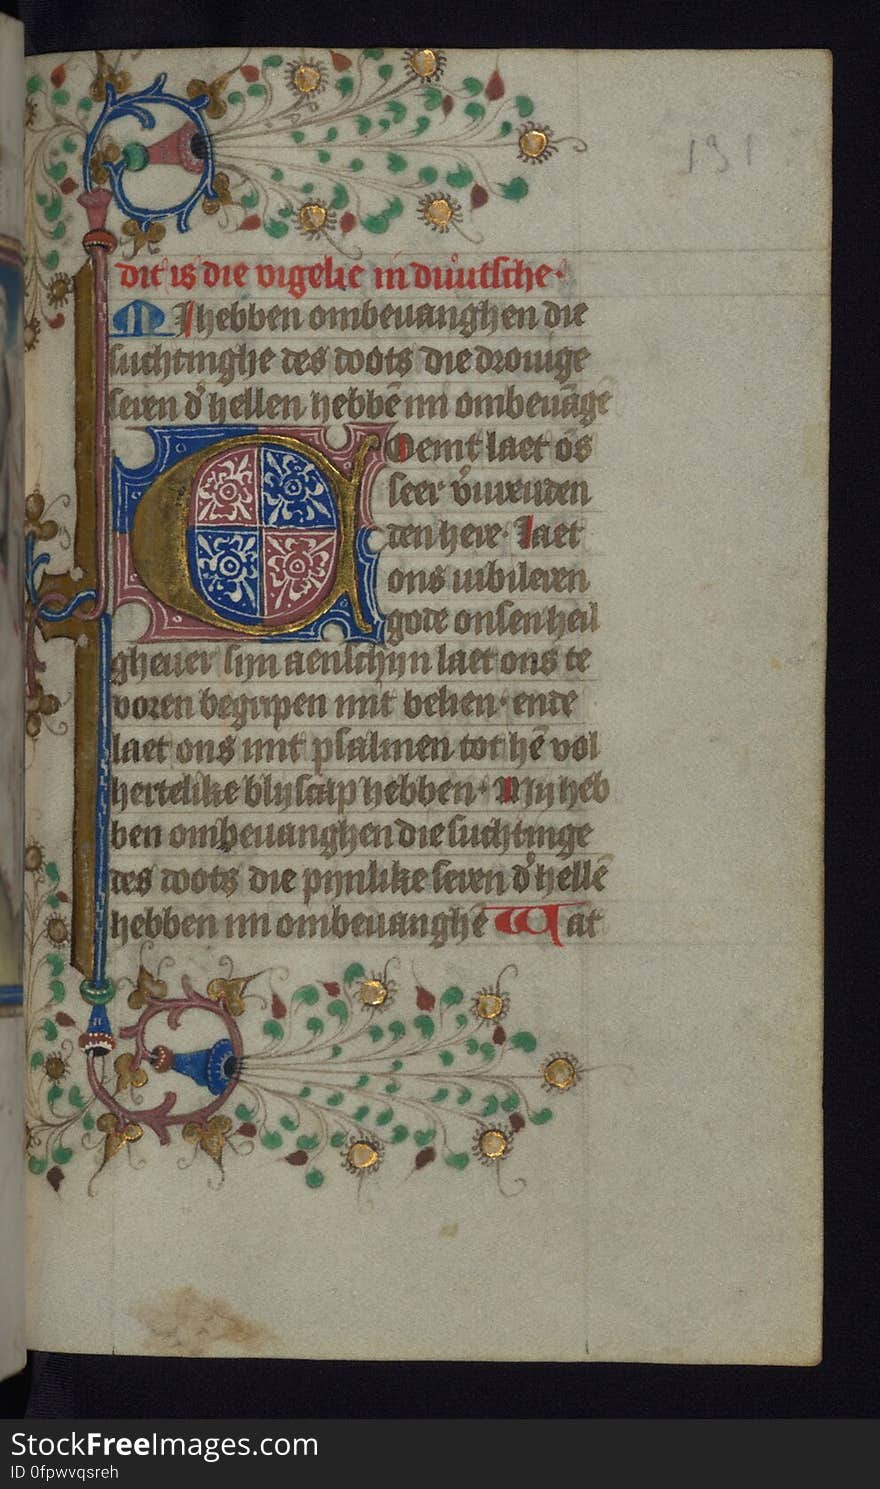 131
dit is die vigelie in duutsche·
MI hebben ombeuanghen die
suchtinghe des doots die drouige
seren d' hellen hebbē mi ombeuāgē
Coemt laet ōs
seer v'vreuden
den here· Laet
ons iubileren
gode onsen heil
gheuer sijn aenschijn laet ons te
voren begripen mit belien· ende
laet ons mit psalmen tot hē vol
hertelike blyscap hebben· Mij heb
ben ombeuanghen die suchtinge
des doots die pijnlike seren d' hellē
hebben mi ombeuanghē Wat
StockFreeImages.com
ID 0fpwvqsreh